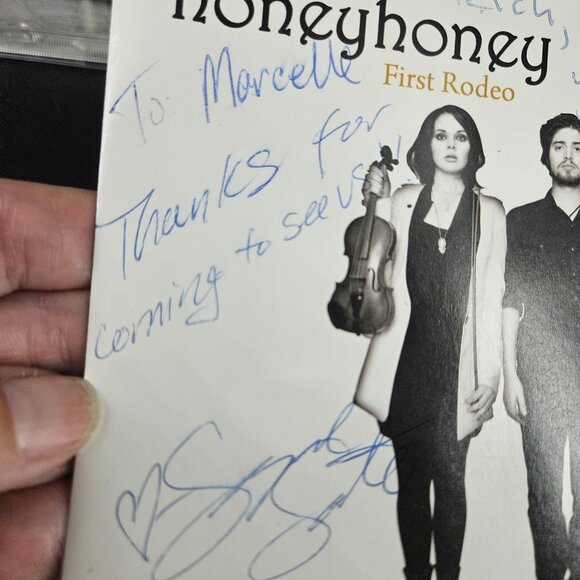 honeyhoney
First Rodeo
To: Marcelle
Thanks for
coming to see us!!